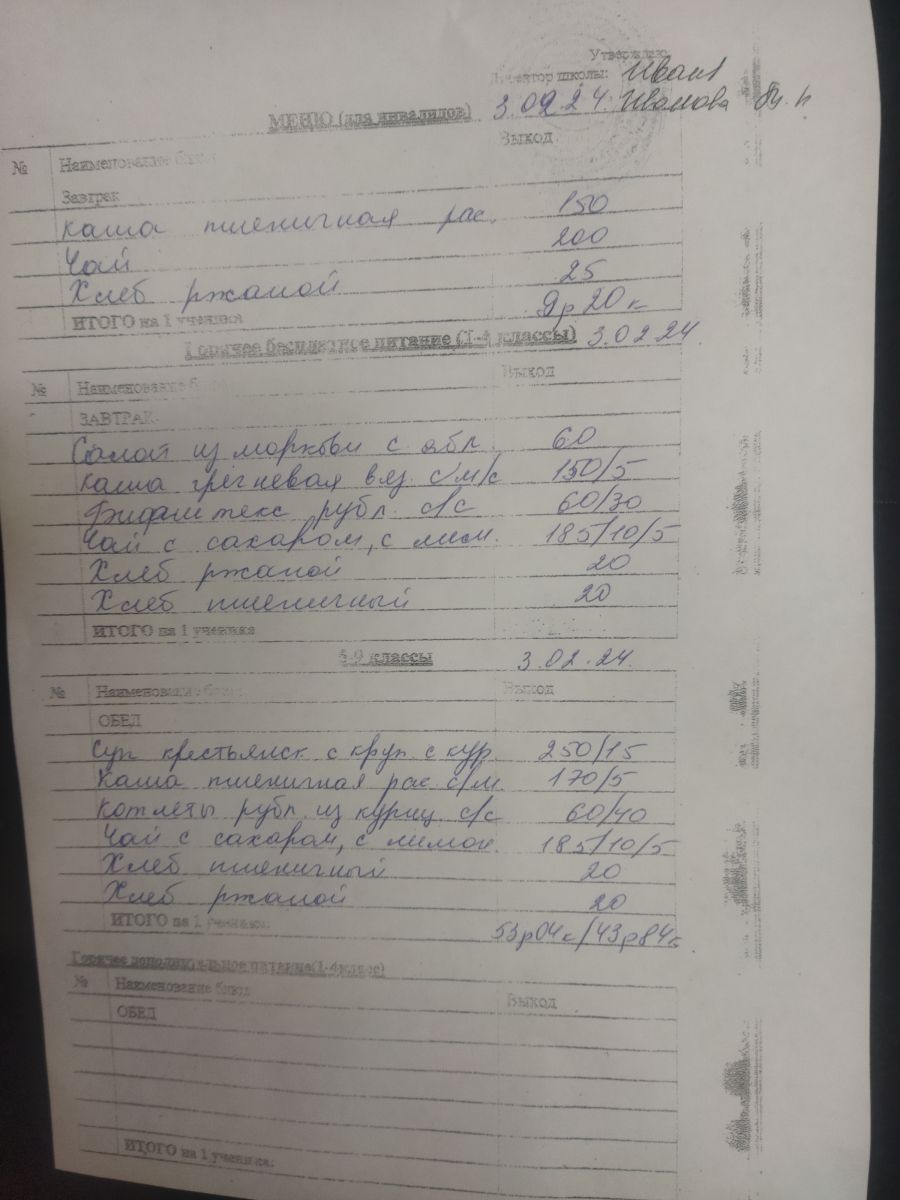 Утверждаю
Директор школы: Иван
МЕНЮ (для инвалидов) 3.02.24. Иванова
№ Наименование блюд Выход
Завтрак
Каша пшеничная рас. 150
Чай 200
Хлеб ржаной 25
ИТОГО на 1 ученика 9р 20к
Горячее бесплатное питание (1-4 классы) 3.02.24.
№ Наименование блюд Выход
ЗАВТРАК
Салат из моркови с ябл. 60
Каша гречневая вяз. с/м/с 150/5
Бифштекс рубл. с/с 60/30
Чай с сахаром, с лим. 185/10/5
Хлеб ржаной 20
Хлеб пшеничный 20
ИТОГО на 1 ученика
5-9 классы 3.02.24.
№ Наименование блюд Выход
ОБЕД
Суп крестьянск. с круп. с кур. 250/15
Каша пшеничная рас. с/м. 170/5
Котлеты рубл. из куриц. с/с 60/40
Чай с сахаром, с лимон. 185/10/5
Хлеб пшеничный 20
Хлеб ржаной 20
ИТОГО на 1 ученика: 53р04к/43р84к
Горячее дополнительное питание(1-4класс)
№ Наименование блюд Выход
ОБЕД
ИТОГО на 1 ученика: